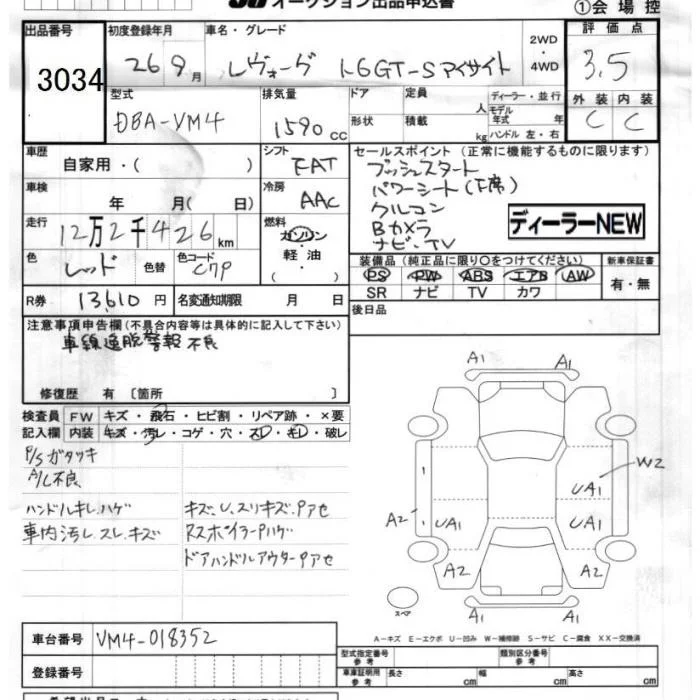 オークション出品申込書
①会場控
出品番号
3034
初度登録年月
26 9月
車名・グレード
レヴォーグ 1.6GT-Sアイサイト
2WD
・
4WD
評価点
3.5
型式
DBA-VM4
排気量
1590cc
ドア
形状
定員
人
積載
kg
ディーラー・並行
モデル
年式 年
ハンドル 左・右
外装
内装
C
C
車歴
自家用・( )
シフト
FAT
セールスポイント（正常に機能するものに限ります）
プッシュスタート
パワーシート(F席)
クルコン
Bカメラ
ナビ・TV
ディーラーNEW
車検
年 月( 日)
冷房
AAC
走行
12万2千426km
燃料
ガソリン
・
軽油
( )
色
レッド
色替
色コード
C7P
装備品（純正品に限り○をつけてください）
PS PW ABS エアB AW
SR ナビ TV カワ
新車保証書
有・無
R券
13,610円
名変通知期限
月 日
後日品
注意事項申告欄（不具合内容等は具体的に記入して下さい）
車線逸脱警報不良
修復歴 有〔箇所 〕
検査員
記入欄
FW
キズ・飛石・ヒビ割・リペア跡・×要
内装
キズ・汚レ・コゲ・穴・スレ・キレ・破レ
P/Sガタツキ
A/C不良
ハンドルキレ、ハゲ
車内汚レ、スレ、キズ
キズ、U、スリキズ、Pアセ
RスポイラーPハゲ
ドアハンドルアウターPアセ
A1
A1
W2
UA1
A2
UA1
UA1
A2
A2
A1
A1
スペア
A－キズ E－エクボ U－凹み W－補修跡 S－サビ C－腐食 XX－交換済
車台番号
VM4-018352
登録番号
型式指定番号
参考
類別区分番号
参考
車庫証明用
参考
長さ
cm
幅
cm
高さ
cm